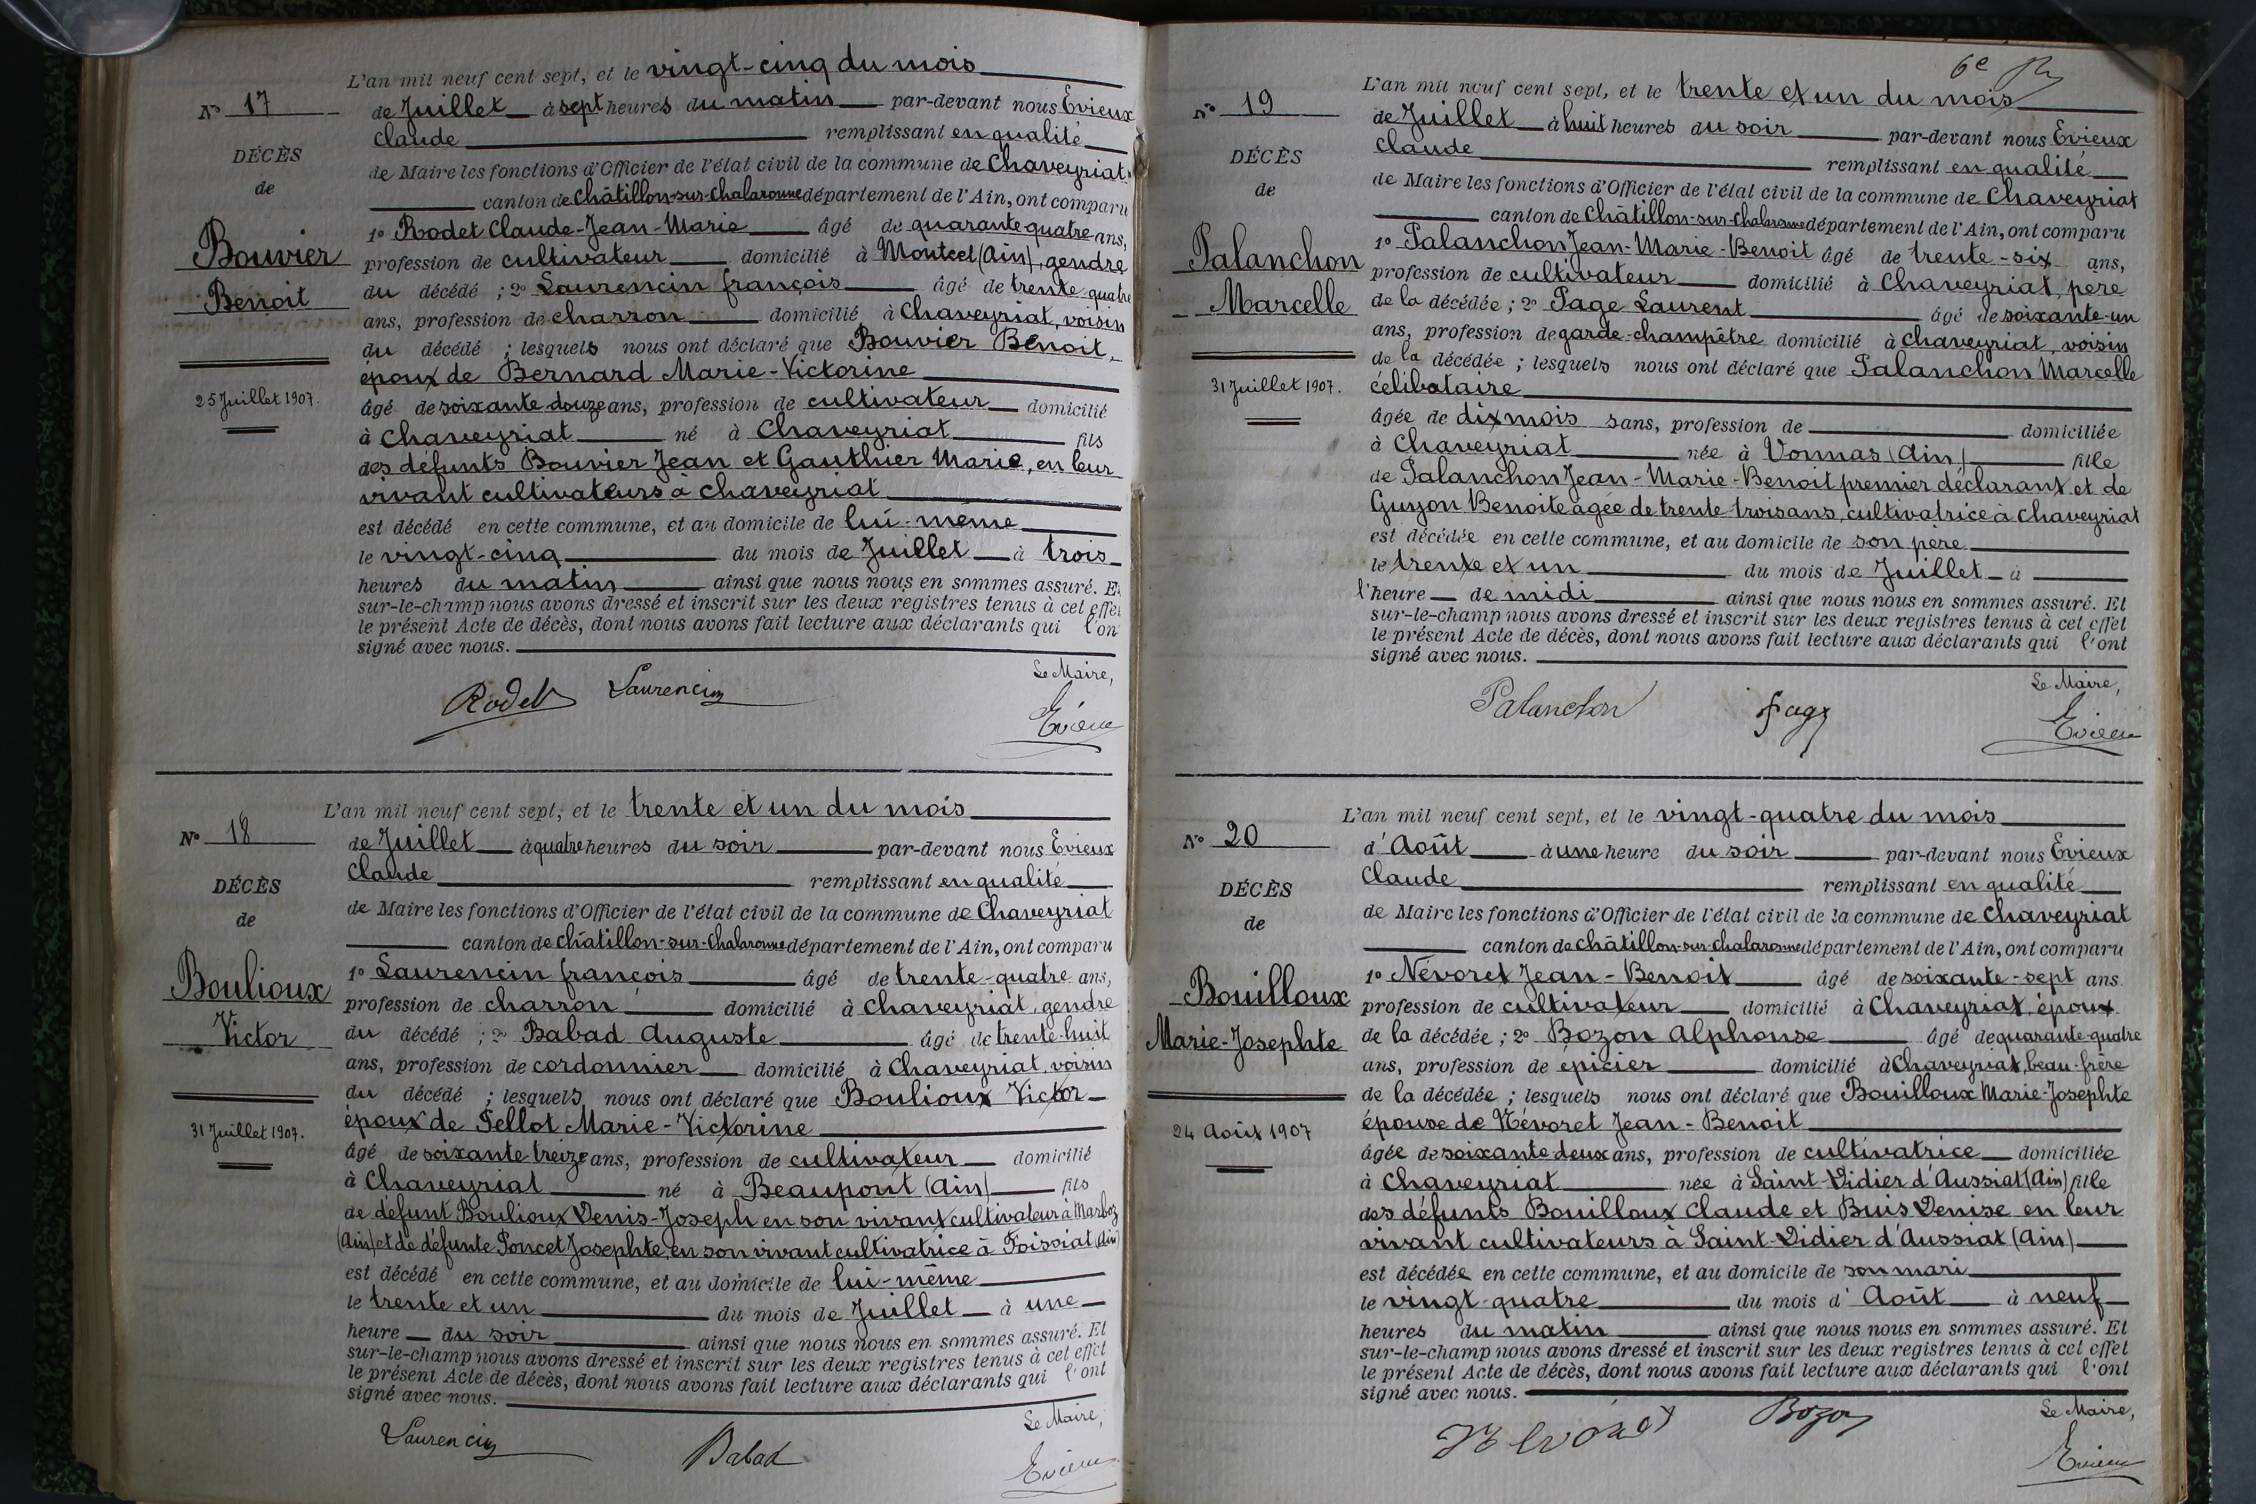 L'an mil neuf cent sept, et le vingt-cinq du mois
N° 17
de Juillet à sept heures du matin par-devant nous Evieux
Claude remplissant en qualité
DÉCÈS
de Maire les fonctions d'Officier de l'état civil de la commune de Chaveyriat
de
canton de Châtillon-sur-Chalaronne département de l'Ain, ont comparu
1° Rodet Claude-Jean-Marie âgé de quarante-quatre ans,
Bouvier
profession de cultivateur domicilié à Montcet (Ain), gendre
Benoit
du décédé ; 2° Laurencin françois âgé de trente quatre
ans, profession de charron domicilié à Chaveyriat, voisin
du décédé ; lesquels nous ont déclaré que Bouvier Benoit,
époux de Bernard Marie-Victorine
25 Juillet 1907.
âgé de soixante douze ans, profession de cultivateur domicilié
à Chaveyriat né à Chaveyriat fils
des défunts Bouvier Jean et Gauthier Marie, en leur
vivant cultivateurs à Chaveyriat
est décédé en cette commune, et au domicile de lui-même
le vingt-cinq du mois de Juillet à trois
heures du matin ainsi que nous nous en sommes assuré. Et
sur-le-champ nous avons dressé et inscrit sur les deux registres tenus à cet effet
le présent Acte de décès, dont nous avons fait lecture aux déclarants qui l'on
signé avec nous.
Le Maire,
Rodet Laurencin
Evieux
L'an mil neuf cent sept, et le trente et un du mois
N° 18
de Juillet à quatre heures du soir par-devant nous Evieux
Claude remplissant en qualité
DÉCÈS
de Maire les fonctions d'Officier de l'état civil de la commune de Chaveyriat
de
canton de Châtillon-sur-Chalaronne département de l'Ain, ont comparu
1° Laurencin françois âgé de trente-quatre ans,
Boulioux
profession de charron domicilié à Chaveyriat, gendre
Victor
du décédé ; 2° Babad Auguste âgé de trente-huit
ans, profession de cordonnier domicilié à Chaveyriat, voisin
du décédé ; lesquels nous ont déclaré que Boulioux Victor
époux de Pellot Marie-Victorine
31 Juillet 1907.
âgé de soixante treize ans, profession de cultivateur domicilié
à Chaveyriat né à Beaupont (Ain) fils
de défunt Boulioux Denis-Joseph en son vivant cultivateur à Marboz
(Ain) et de défunte Poncet Josephte, en son vivant cultivatrice à Foissiat (Ain)
est décédé en cette commune, et au domicile de lui-même
le trente et un du mois de Juillet à une
heure du soir ainsi que nous nous en sommes assuré. Et
sur-le-champ nous avons dressé et inscrit sur les deux registres tenus à cet effet
le présent Acte de décès, dont nous avons fait lecture aux déclarants qui l'ont
signé avec nous.
Le Maire,
Laurencin Babad
Evieux
6e
L'an mil neuf cent sept, et le trente et un du mois
N° 19
de Juillet à huit heures du soir par-devant nous Evieux
Claude remplissant en qualité
DÉCÈS
de Maire les fonctions d'Officier de l'état civil de la commune de Chaveyriat
de
canton de Châtillon-sur-Chalaronne département de l'Ain, ont comparu
1° Palanchon Jean-Marie-Benoit âgé de trente-six ans,
Palanchon
profession de cultivateur domicilié à Chaveyriat, père
Marcelle
de la décédée ; 2° Page Laurent âgé de soixante-un
ans, profession de garde-champêtre domicilié à Chaveyriat, voisin
de la décédée ; lesquels nous ont déclaré que Palanchon Marcelle
31 Juillet 1907.
célibataire
âgée de dix mois sans, profession de domiciliée
à Chaveyriat née à Vonnas (Ain) fille
de Palanchon Jean-Marie-Benoit premier déclarant et de
Guyon Benoite âgée de trente trois ans, cultivatrice à Chaveyriat
est décédée en cette commune, et au domicile de son père
le trente et un du mois de Juillet à
l'heure de midi ainsi que nous nous en sommes assuré. Et
sur-le-champ nous avons dressé et inscrit sur les deux registres tenus à cet effet
le présent Acte de décès, dont nous avons fait lecture aux déclarants qui l'ont
signé avec nous.
Le Maire,
Palanchon Page
Evieux
L'an mil neuf cent sept, et le vingt-quatre du mois
N° 20
d'Août à une heure du soir par-devant nous Evieux
Claude remplissant en qualité
DÉCÈS
de Maire les fonctions d'Officier de l'état civil de la commune de Chaveyriat
de
canton de Châtillon-sur-Chalaronne département de l'Ain, ont comparu
1° Névoret Jean-Benoit âgé de soixante-sept ans
Bouilloux
profession de cultivateur domicilié à Chaveyriat, époux
Marie-Josephte
de la décédée ; 2° Bozon Alphonse âgé de quarante-quatre
ans, profession de épicier domicilié à Chaveyriat, beau-frère
de la décédée ; lesquels nous ont déclaré que Bouilloux Marie-Josephte
épouse de Névoret Jean-Benoit
24 Août 1907
âgée de soixante deux ans, profession de cultivatrice domiciliée
à Chaveyriat née à Saint-Didier d'Aussiat (Ain) fille
des défunts Bouilloux Claude et Buis Denise en leur
vivant cultivateurs à Saint-Didier d'Aussiat (Ain)
est décédée en cette commune, et au domicile de son mari
le vingt-quatre du mois d'Août à neuf
heures du matin ainsi que nous nous en sommes assuré. Et
sur-le-champ nous avons dressé et inscrit sur les deux registres tenus à cet effet
le présent Acte de décès, dont nous avons fait lecture aux déclarants qui l'ont
signé avec nous.
Le Maire,
Névoret Bozon
Evieux